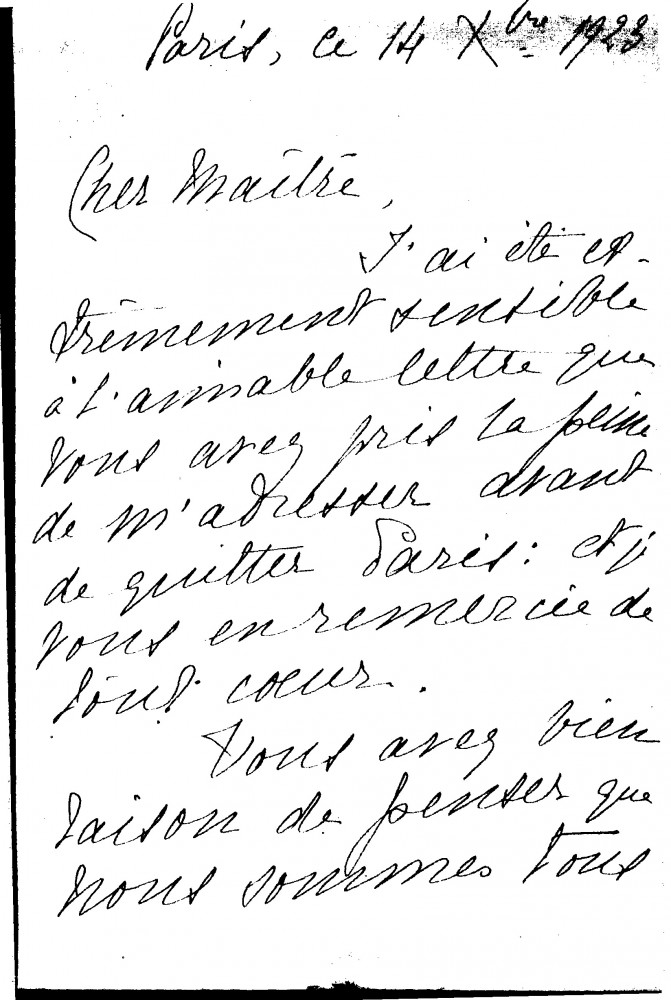 Paris, ce 14 Xbre 1923
Cher Maître,
J'ai été ex-
trêmement sensible
à l'aimable lettre que
vous avez pris la peine
de m'adresser avant
de quitter Paris: et je
vous en remercie de
tout coeur.
Vous avez bien
raison de penser que
nous sommes tous